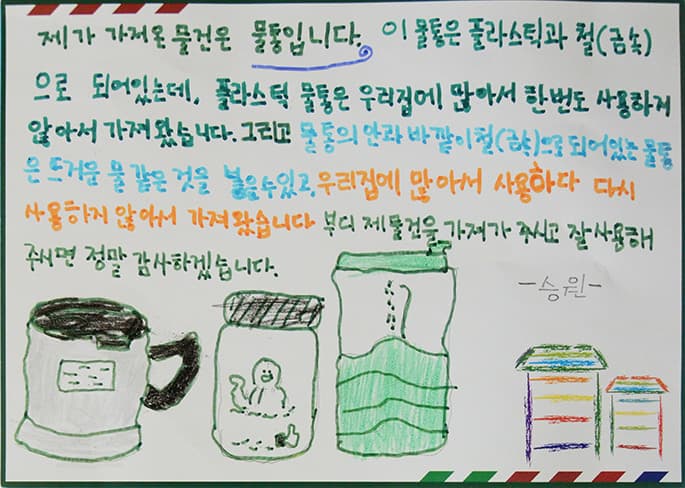 제가 가져온 물건은 물통입니다. 이 물통은 플라스틱과 철(금속)
으로 되어있는데, 플라스틱 물통은 우리집에 많아서 한번도 사용하지
않아서 가져왔습니다. 그리고 물통의 안과 바깥이 철(금속)으로 되어있는 물통
은 뜨거운 물 같은 것을 넣을 수 있고, 우리집에 많아서 사용하다 다시
사용하지 않아서 가져왔습니다 부디 제 물건을 가져가 주시고 잘 사용해
주시면 정말 감사하겠습니다.
-승원-